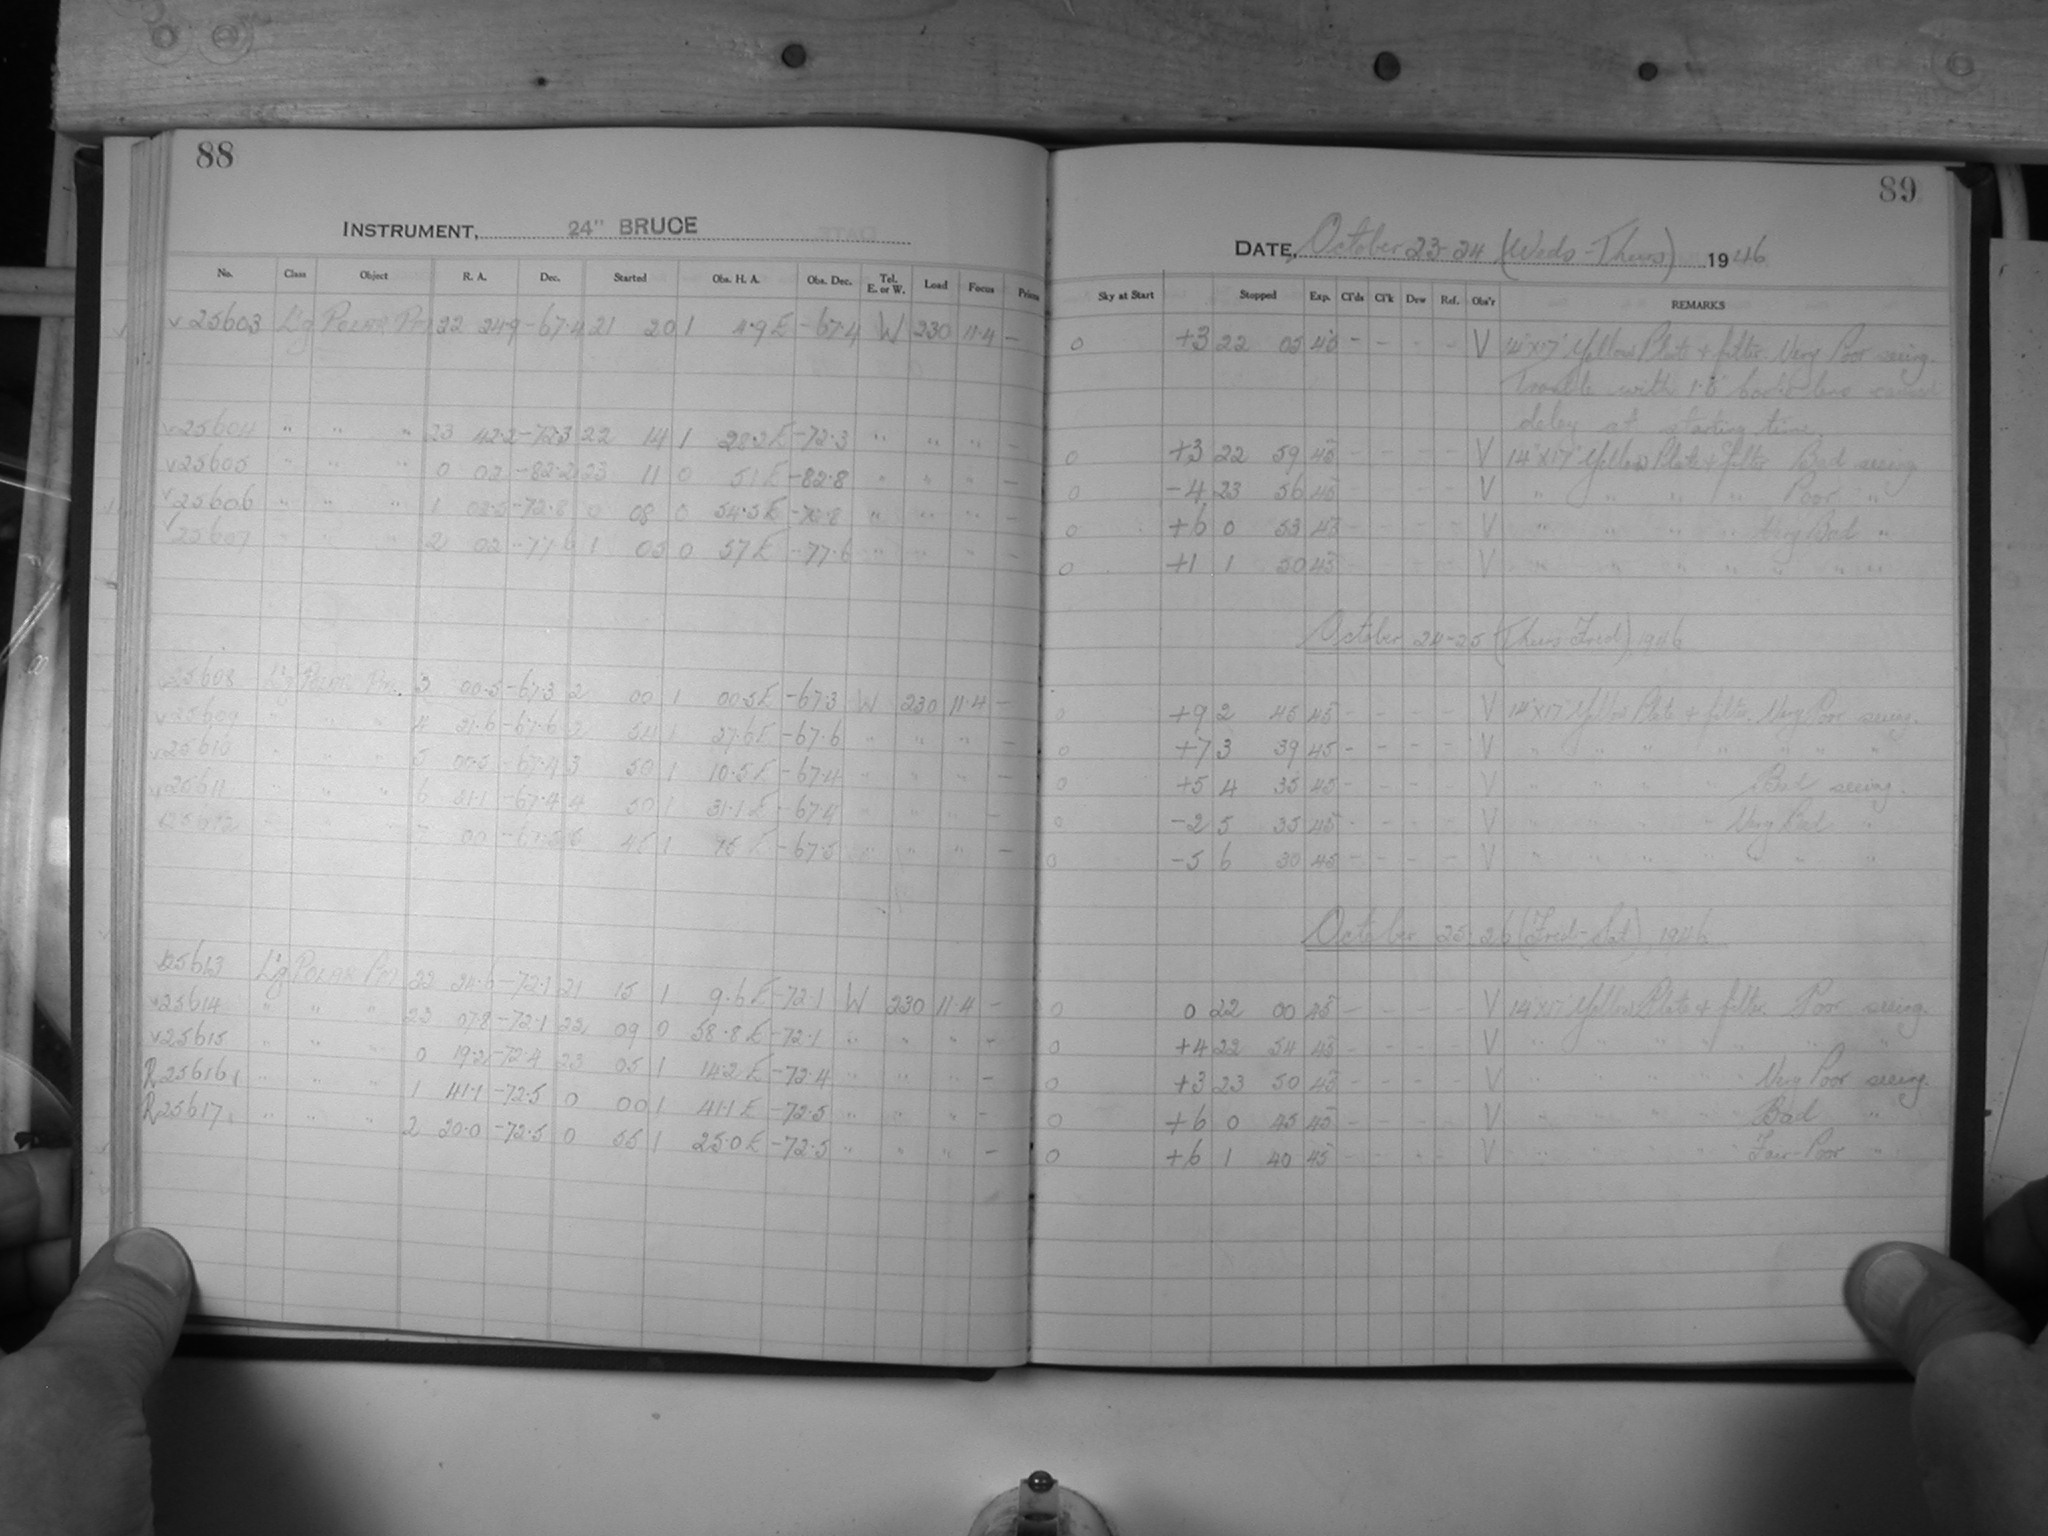 88
INSTRUMENT, 24" BRUCE
No. Class Object R. A. Dec. Started Obs. H. A. Obs. Dec. Tel. E. or W. Load Focus
25603 L'g POLAR Pm 22 24.9 -67.4 21 20 1 4.9 E -67.4 W 230 11.4 -
25604 " " " 23 42.2 -72.3 22 14 1 28.2 E -72.3 " " " -
25605 " " " 0 02 -82.2 23 11 0 51 E -82.8 " " " -
25606 " " " 1 02.5 -72.8 0 08 0 54.5 E -72.8 " " " -
25607 " " " 2 02 -77.6 1 05 0 57 E -77.6 " " " -
25608 L'g POLAR Pm. 3 00.5 -67.3 2 00 1 00.5 E -67.3 W 230 11.4 -
25609 " " " 4 21.6 -67.6 2 54 1 27.6 E -67.6 " " " -
25610 " " " 5 00.5 -67.4 3 50 1 10.5 E -67.4 " " " -
25611 " " " 6 21.1 -67.4 4 50 1 31.1 E -67.4 " " " -
25612 " " " 7 00 -67.5 5 45 1 15 E -67.5 " " " -
25613 L'g POLAR Pm 22 24.6 -72.1 21 15 1 9.6 E -72.1 W 230 11.4 -
25614 " " " 23 07.8 -72.1 22 09 0 58.8 E -72.1 " " " -
25615 " " " 0 19.2 -72.4 23 05 1 14.2 E -72.4 " " " -
R25616 " " " 1 41.1 -72.5 0 00 1 41.1 E -72.5 " " " -
R25617 " " " 2 20.0 -72.5 0 55 1 25.0 E -72.5 " " " -
89
DATE, October 23-24 (Weds-Thurs) 1946
Sky at Start Stopped Exp. Cl'ds Cl'k Dew Ref. Obs'r REMARKS
0 +3 22 05 45 - - - - V 14"x17" Yellow Plate + filter. Very Poor seeing.
Trouble with 1.8" caused
delay at starting time.
0 +3 22 59 45 - - - - V 14"x17" Yellow Plate + filter Bad seeing
0 -4 23 56 45 - - - - V " " " " Poor "
0 +6 0 53 45 - - - - V " " " " Very Bad "
0 +1 1 50 45 - - - - V " " " " " " "
October 24-25 (Thurs-Fred) 1946
0 +9 2 45 45 - - - - V 14"x17" Yellow Plate + filter. Very Poor seeing.
0 +7 3 39 45 - - - - V " " " " " " "
0 +5 4 35 45 - - - - V " " " " Bad seeing.
0 -2 5 35 45 - - - - V " " " " Very Bad "
0 -5 6 30 45 - - - - V " " " " " " "
October 25-26 (Fred-Sat), 1946
0 0 22 00 45 - - - - V 14"x17" Yellow Plate + filter. Poor seeing.
0 +4 22 54 45 - - - - V " " " " " "
0 +3 23 50 45 - - - - V " " " " Very Poor seeing.
0 +6 0 45 45 - - - - V " " " " Bad "
0 +6 1 40 45 - - - - V " " " " Fair-Poor "